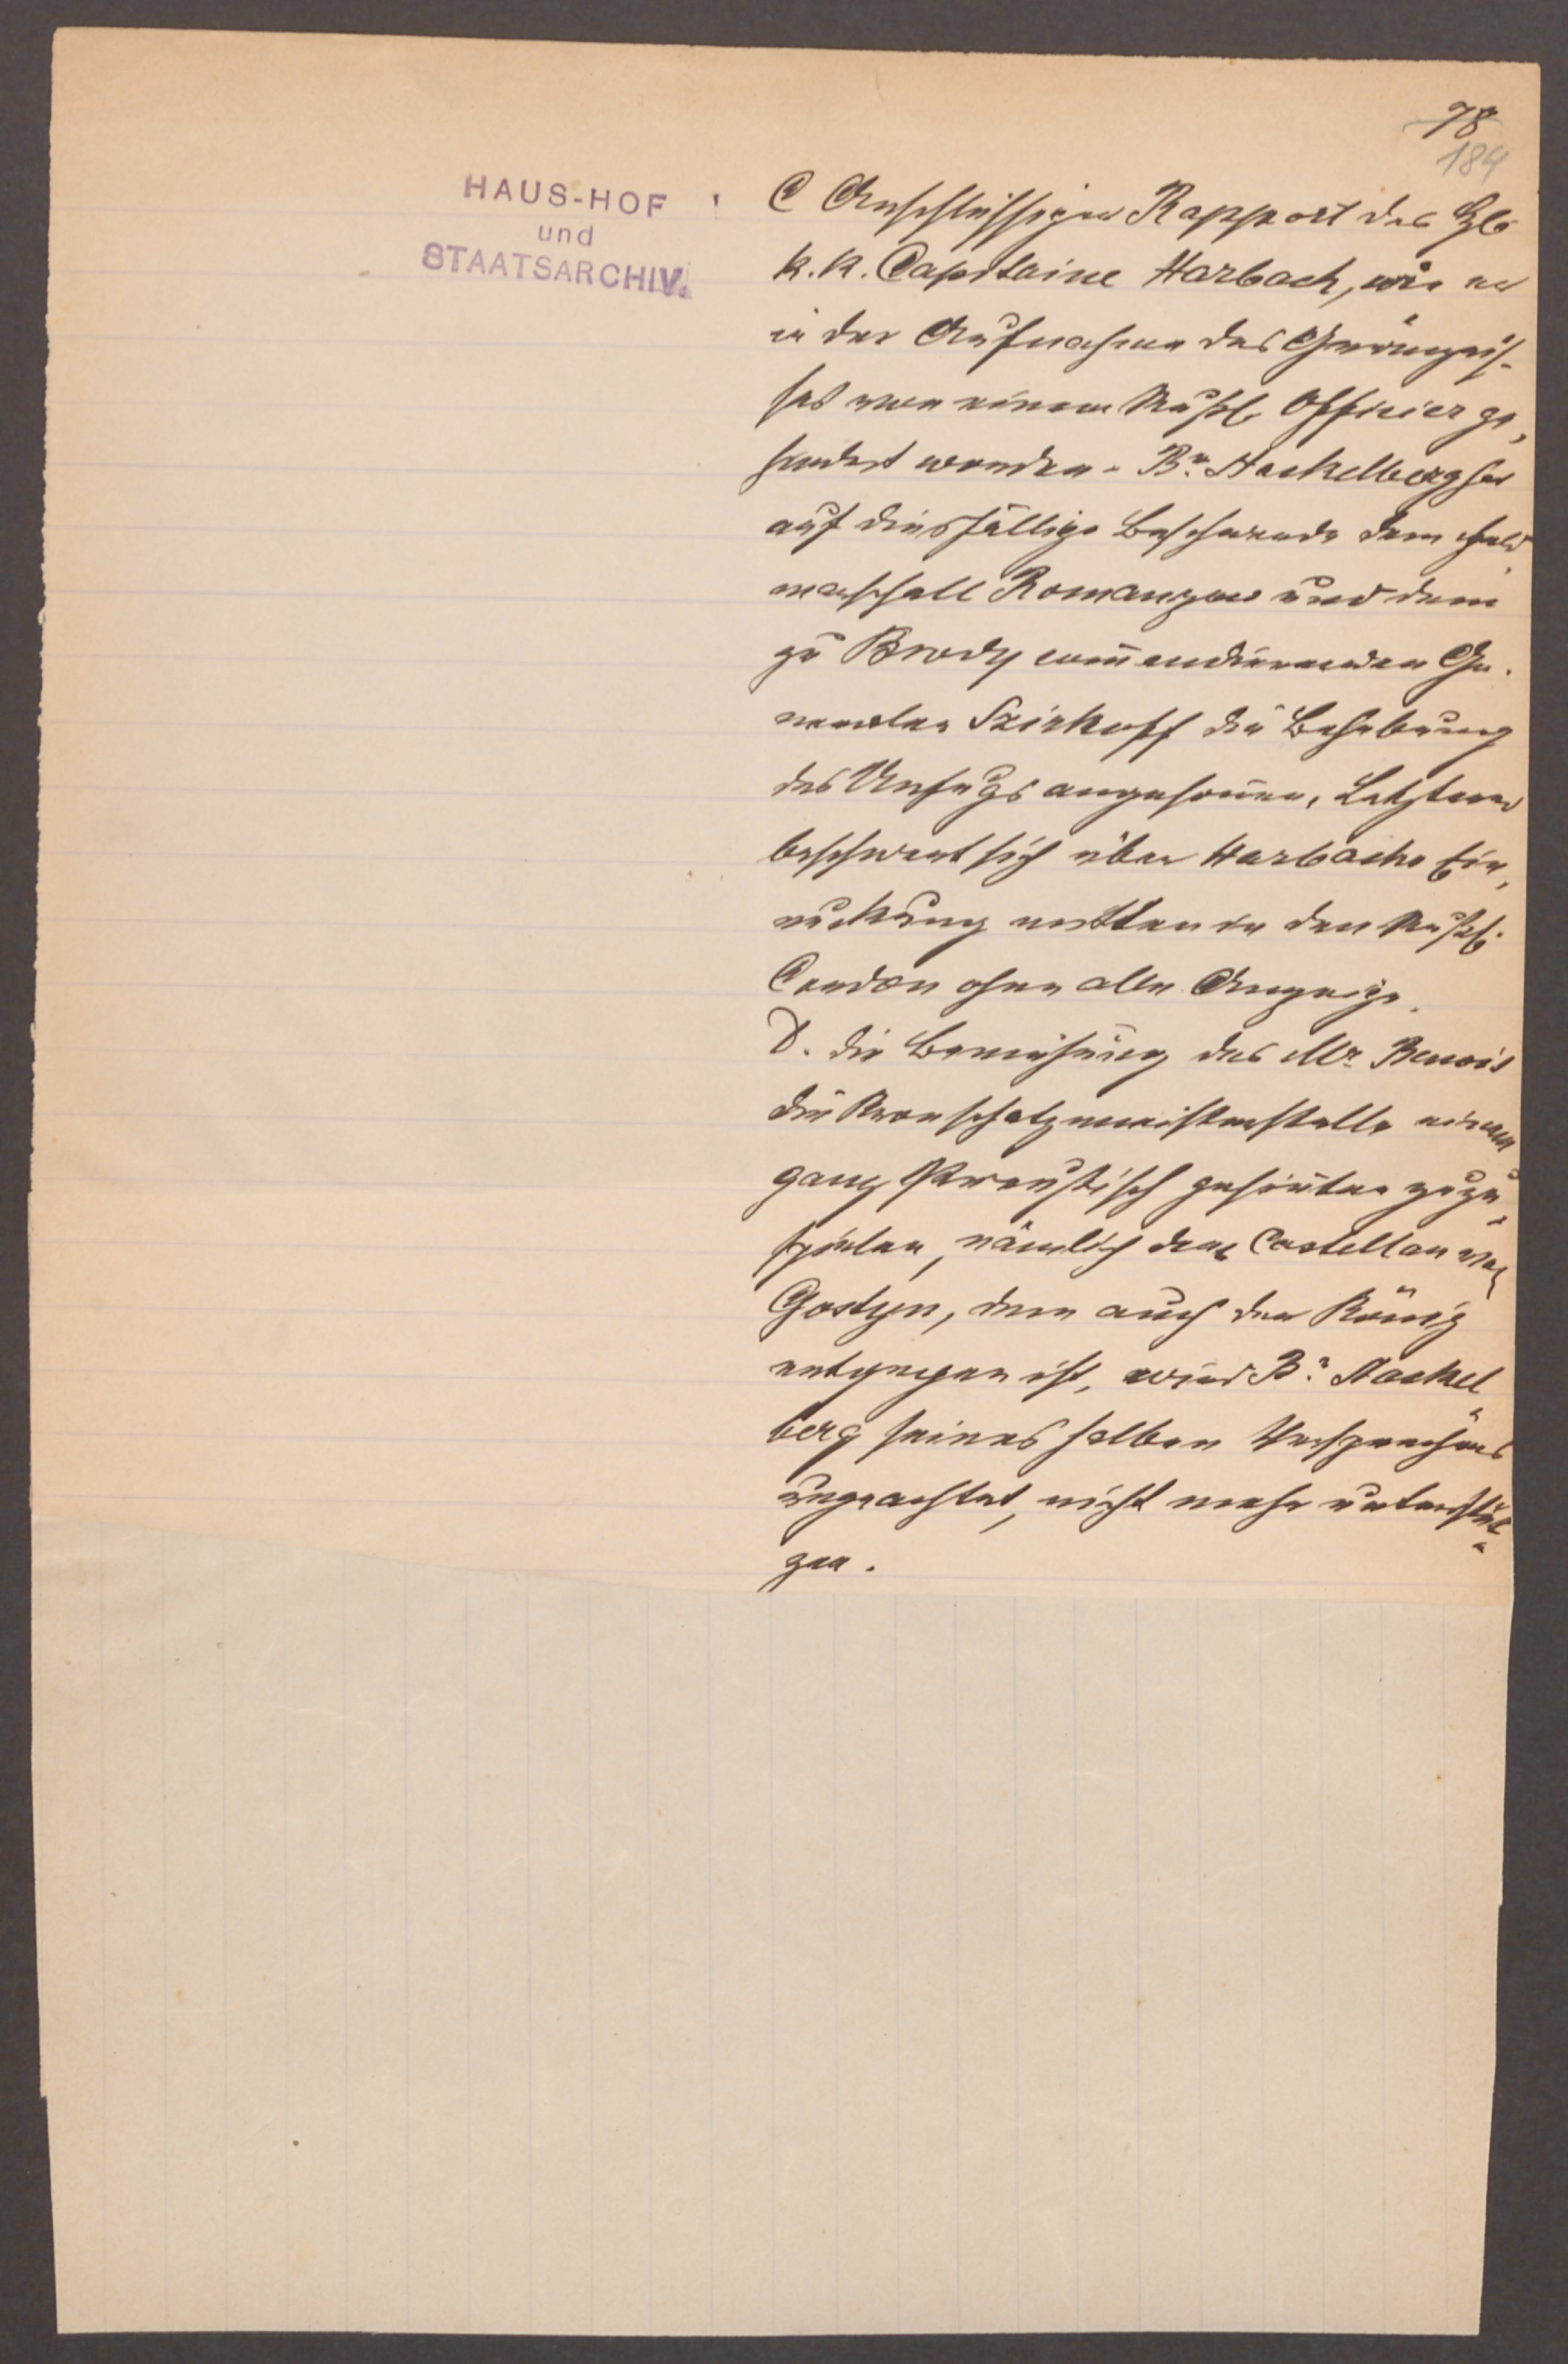 78
184
HAUS-HOF
und
STAATSARCHIV.
C Anschlüssiger Rapport des
k. k. Capitaine Harbach, wie er
in der Aufnahme des
ses von einem Rußl. Officier ge-
hindert worden. Br. Stackelberg hat
auf diesfällige Beschwerde dem Feld-
marschall Romanzow und dem
zu Brody commandirenden Ge-
neralen Szirkoff die Behebung
des Unfugs angesonnen, Letzterer
beschwert sich über Harbachs Ein-
rückung mitten in den Rußl.
Cordon ohne alle Anzeige.
D. die Bemühung des Mr. Benoit
die Kronschatzmeisterstelle einem
ganz Preußisch gesinnten zuzu-
spielen, nämlich dem Castellan von
Gostyn, dem auch der König
entgegen ist, wird Br. Stackel-
berg seines halben Versprechens
ungeachtet, nicht mehr unterstüt-
zen.